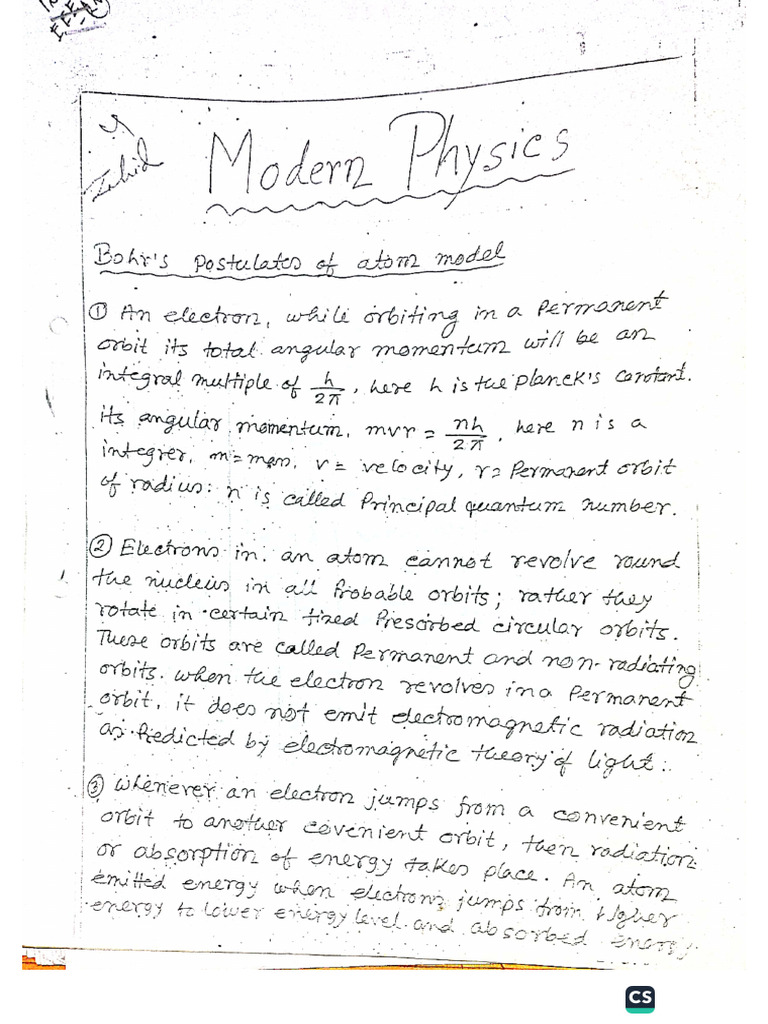 Zahid
Modern Physics
Bohr's postulates of atom model
① An electron, while orbiting in a permanent
orbit its total angular momentum will be an
integral multiple of h/2π, here h is the planck's constant.
its angular momentum, mvr = nh/2π, here n is a
integrer, m = mass, v = velocity, r = Permanent orbit
of radius: n is called Principal quantum number.
② Electrons in an atom cannot revolve round
the nucleus in all Probable orbits; rather they
rotate in certain fixed Prescribed circular orbits.
These orbits are called permanent and non-radiating
orbits. when the electron revolves in a permanent
orbit, it does not emit electromagnetic radiation
as Predicted by electromagnetic theory of light.
③ Whenever an electron jumps from a convenient
orbit to another covenient orbit, then radiation
or absorption of energy takes place. An atom
emitted energy when electrons jumps from higher
energy to lower energy level and absorbed energy
CS